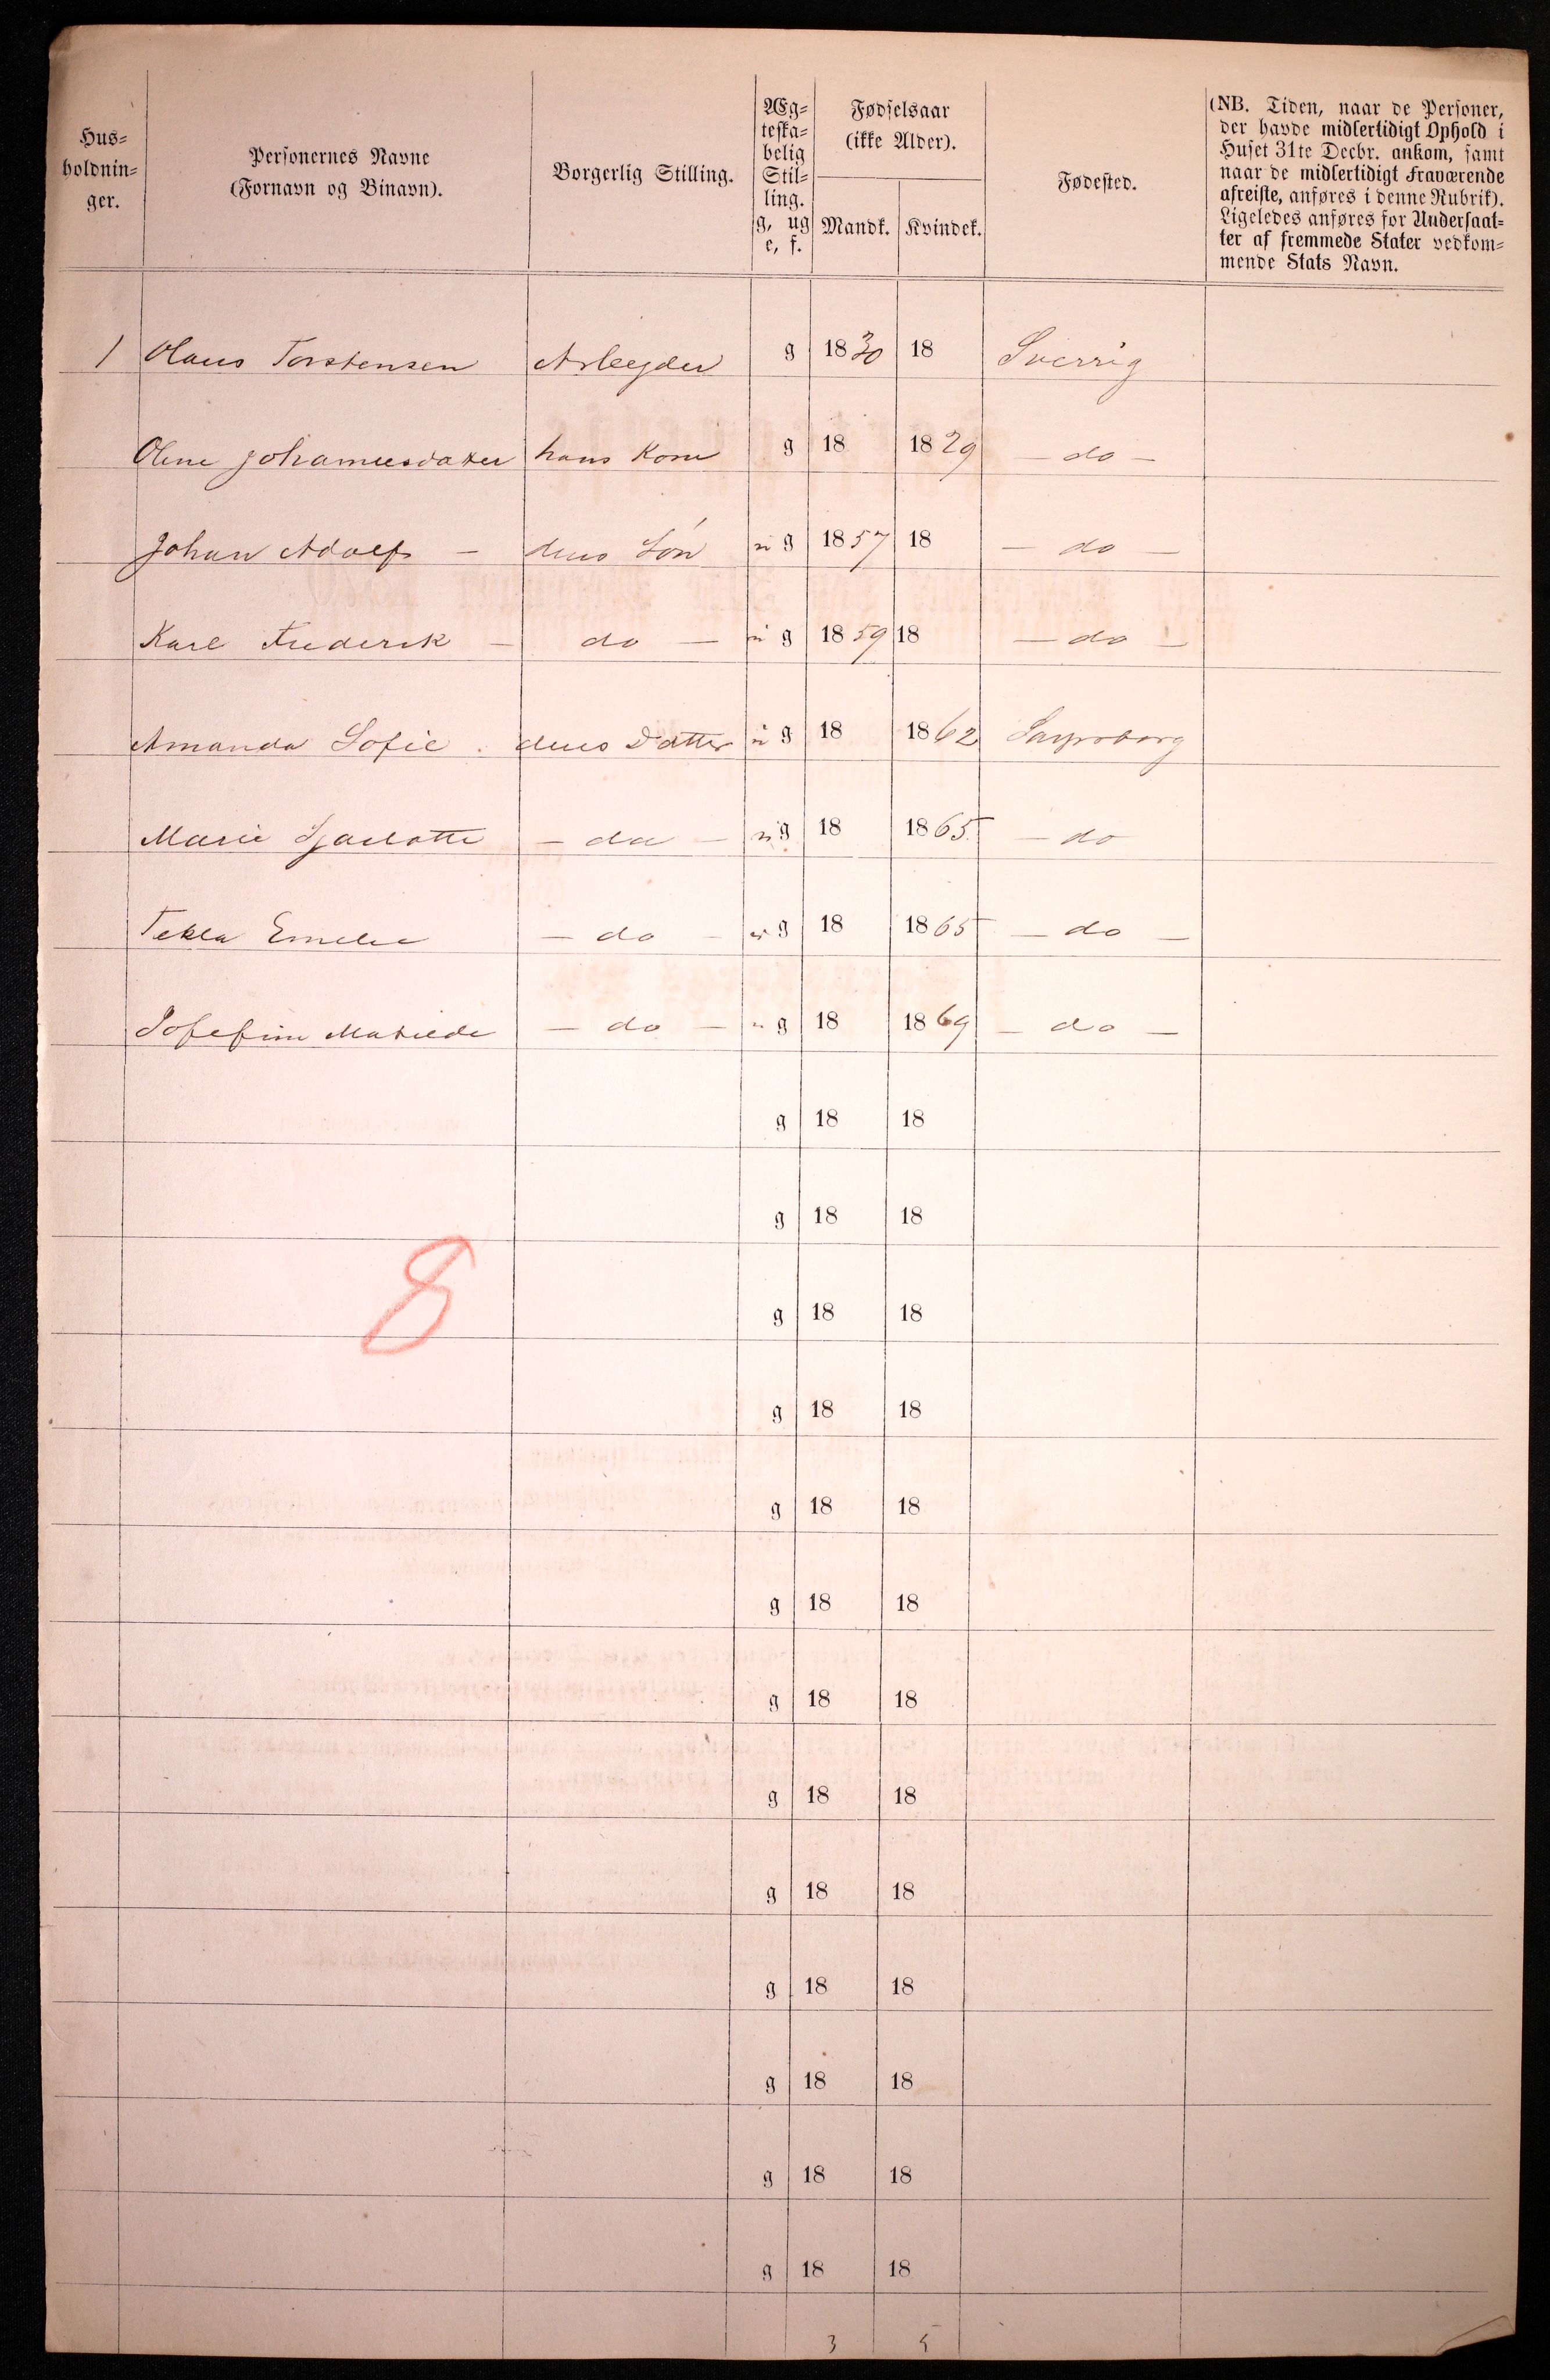 Hus-
holdnin-
ger.
Personernes Navne
(Fornavn og Binavn).
Borgerlig Stilling.
Æg-
teska-
belig
Stil-
ling.
g, ug
e, f.
Fødselsaar
(ikke Alder).
Mandk. Kvindek.
Fødested.
(NB. Tiden, naar de Personer,
der havde midlertidigt Ophold i
Huset 31te Decbr. ankom, samt
naar de midlertidigt Fraværende
afreiste, anføres i denne Rubrik).
Ligeledes anføres for Undersaat-
ter af fremmede Stater vedkom-
mende Stats Navn.
1 Olaus Torstensen Arbeyder g 1830 18 Sverrig
Oline Johannesdatter hans Kone g 18 1829 - do -
Johan Adolf - deres Søn u g 1857 18 - do -
Karl Frederik - do - u g 1859 18 - do -
Amanda Sofie deres Datter u g 18 1862 Sarpsborg
Marie Sjarlotte - do - u g 18 1865 - do
Tekla Emelie - do - u g 18 1865 - do -
Josefine Matilde - do - u g 18 1869 - do -
g 18 18
g 18 18
8
g 18 18
g 18 18
g 18 18
g 18 18
g 18 18
g 18 18
g 18 18
g 18 18
g 18 18
g 18 18
g 18 18
3 5